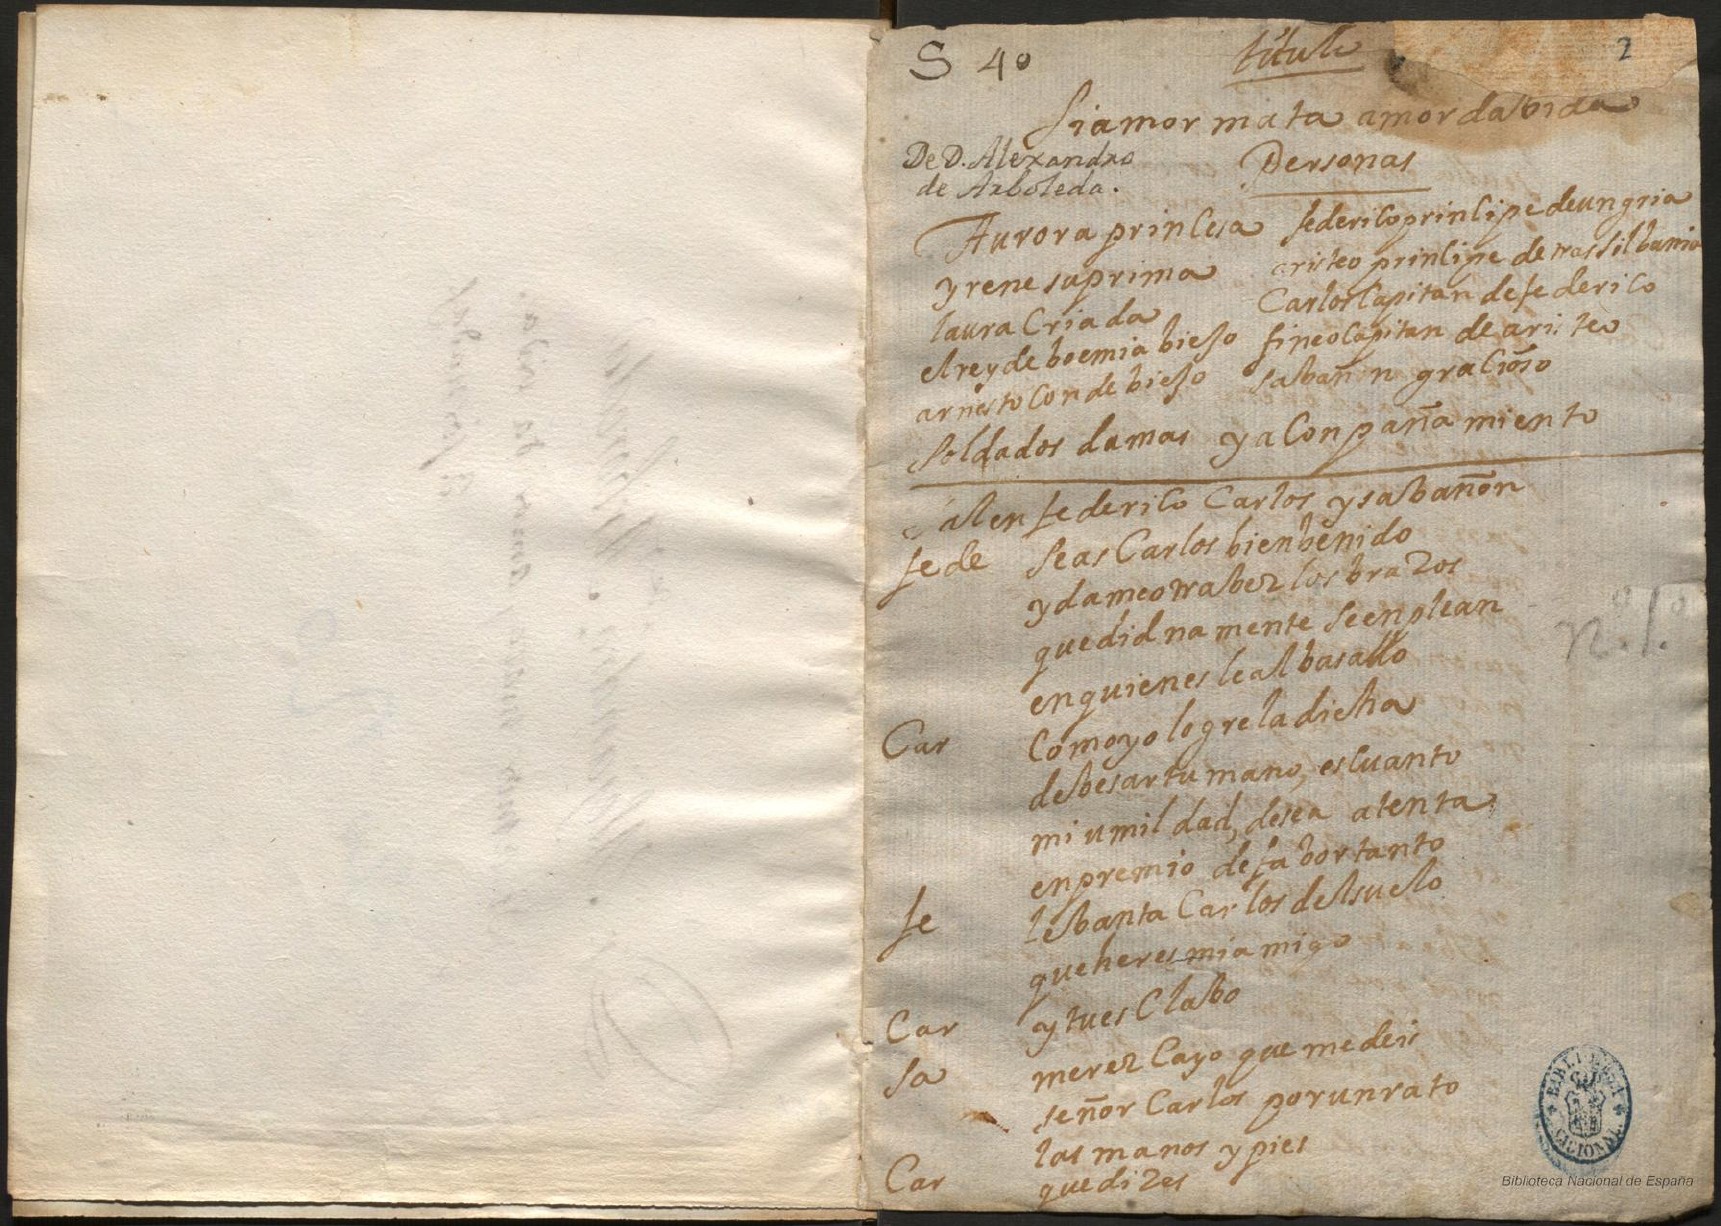 S 4º
titulo
2
si amor mata amor da bida
De D. Alexandro
de Arboleda.
Personas
Aurora princesa
federico principe de ungria
yrene su prima
aristeo principe de trassilbania
laura Criada
Carlos Capitan de federico
el rey de boemia biejo
fineo Capitan de aristeo
arnesto Conde biejo
sabañon graCioso
soldados damas y aConpañamiento
salen federico Carlos y sabañon
fede seas Carlos bien benido
y dame otra bez los brazos
que didnamente se enplean
en quien es leal basallo
Car Como yo logre la dicha
de besar tu mano, es Cuanto
mi umildad, desea atenta
en premio de fabor tanto
fe lebanta Carlos del suelo
que heres mi amigo
Car y tu esClabo
Sa merezCa yo que me deis
señor Carlos por un rato
las manos y pies
Car que dizes
nº 1º
BIBLIOTECA NACIONAL
Biblioteca Nacional de España